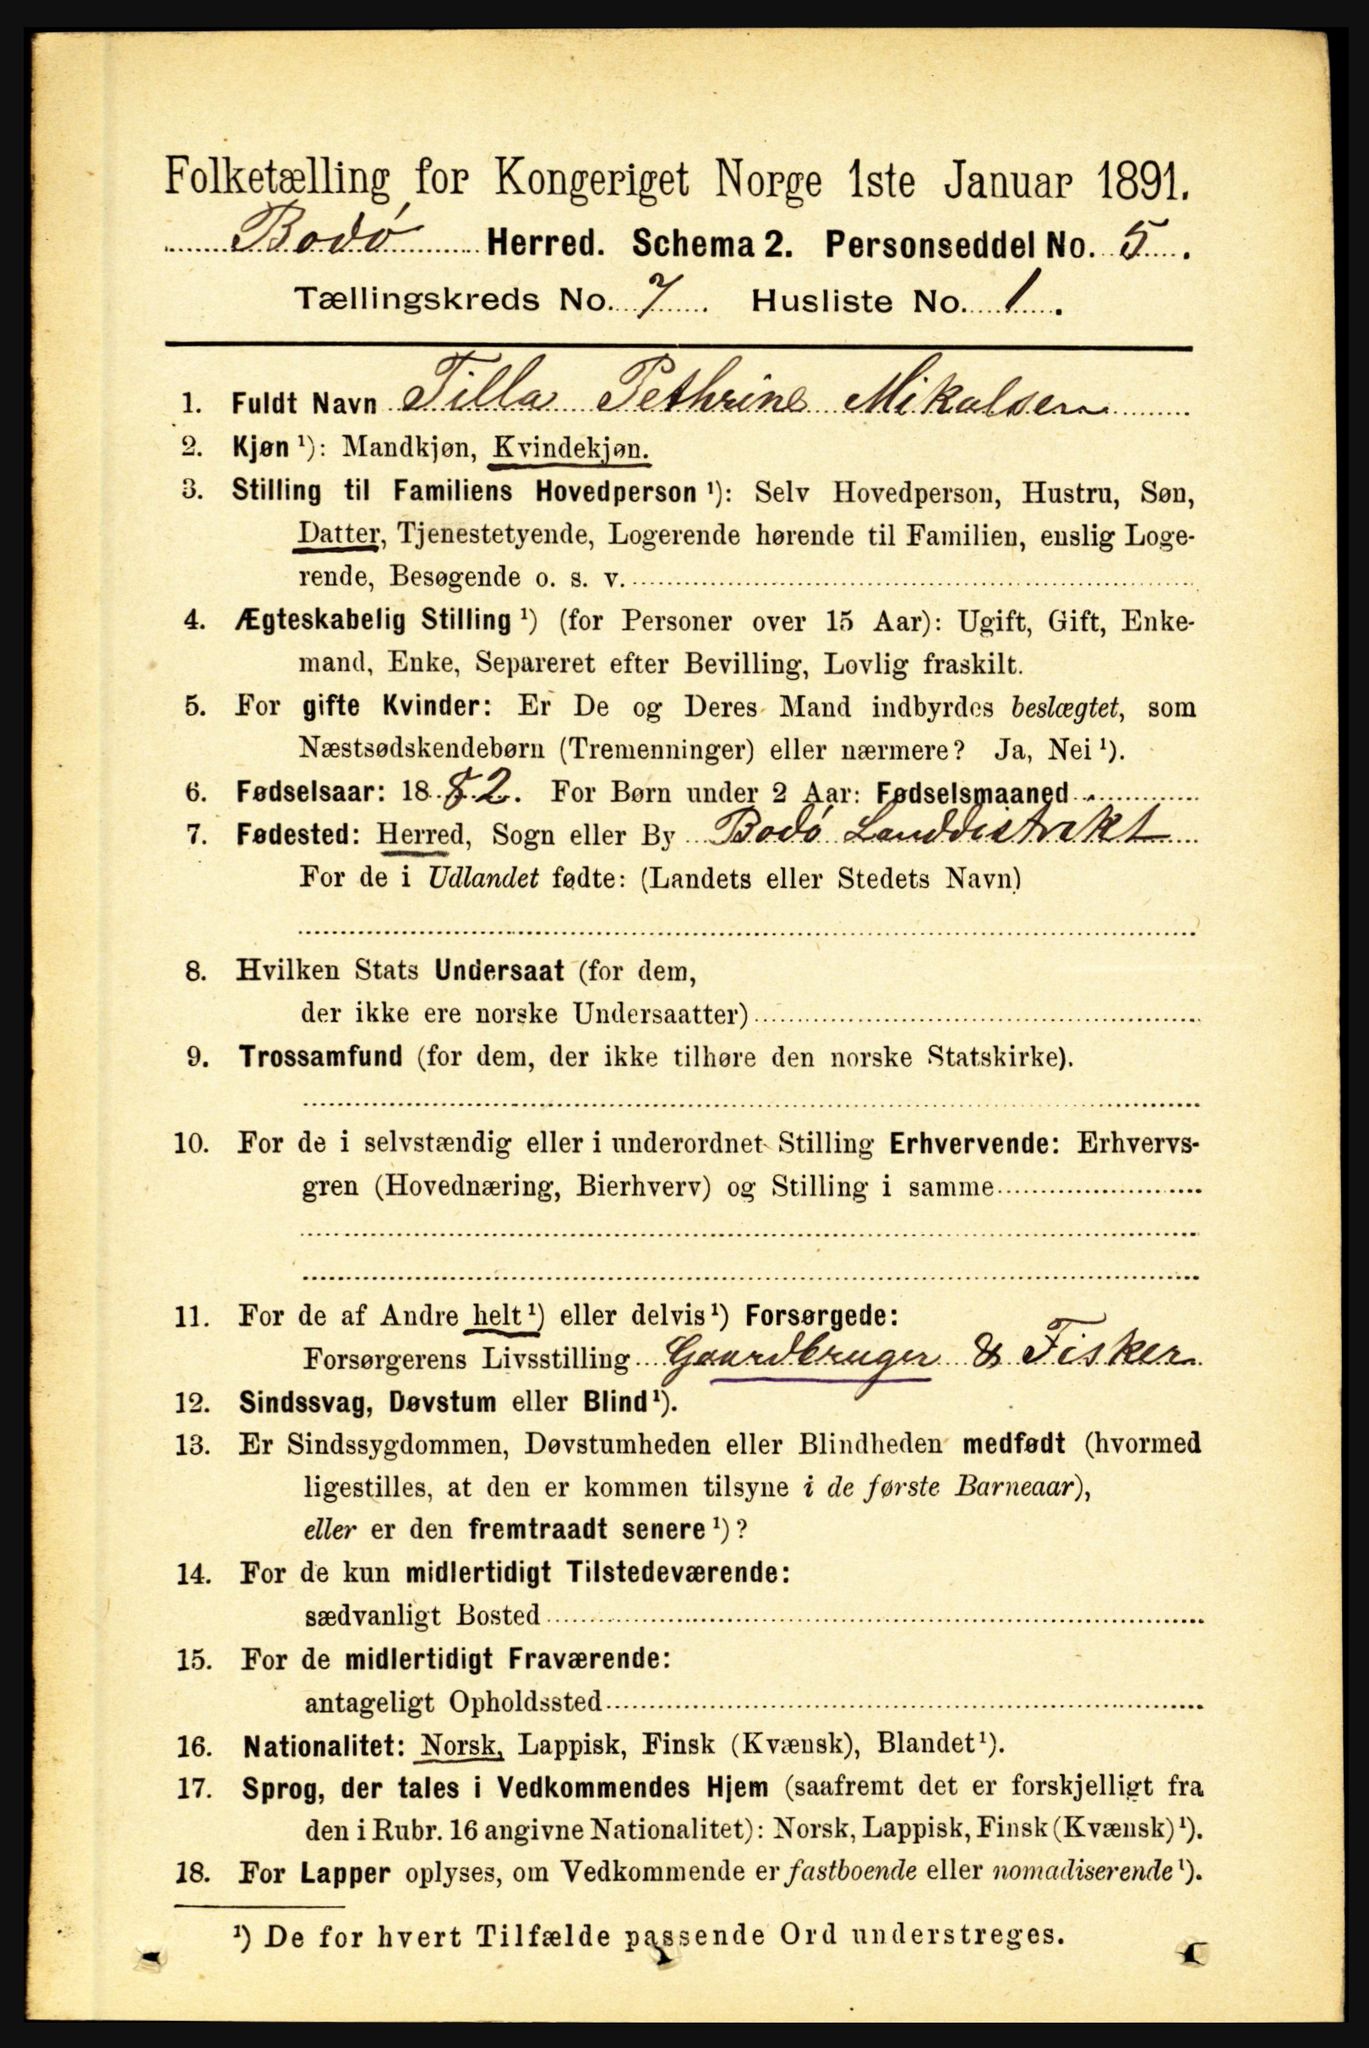 Folketælling for Kongeriget Norge 1ste Januar 1891.
Bodø Herred. Schema 2. Personseddel No. 5.
Tællingskreds No. 7. Husliste No. 1.
1. Fuldt Navn Tilla Pethrine Mikalsen
2. Kjøn¹): Mandkjøn, Kvindekjøn.
3. Stilling til Familiens Hovedperson¹): Selv Hovedperson, Hustru, Søn,
Datter, Tjenestetyende, Logerende hørende til Familien, enslig Loge-
rende, Besøgende o. s. v.
4. Ægteskabelig Stilling¹) (for Personer over 15 Aar): Ugift, Gift, Enke-
mand, Enke, Separeret efter Bevilling, Lovlig fraskilt.
5. For gifte Kvinder: Er De og Deres Mand indbyrdes beslægtet, som
Næstsødskendebørn (Tremenninger) eller nærmere? Ja, Nei¹).
6. Fødselsaar: 1882. For Børn under 2 Aar: Fødselsmaaned
7. Fødested: Herred, Sogn eller By Bodø Landdistrikt
For de i Udlandet fødte: (Landets eller Stedets Navn)
8. Hvilken Stats Undersaat (for dem,
der ikke ere norske Undersaatter)
9. Trossamfund (for dem, der ikke tilhøre den norske Statskirke).
10. For de i selvstændig eller i underordnet Stilling Erhvervende: Erhvervs-
gren (Hovednæring, Bierhverv) og Stilling i samme
11. For de af Andre helt¹) eller delvis¹) Forsørgede:
Forsørgerens Livsstilling Gaardbruger & Fisker
12. Sindssvag, Døvstum eller Blind¹).
13. Er Sindssygdommen, Døvstumheden eller Blindheden medfødt (hvormed
ligestilles, at den er kommen tilsyne i de første Barneaar),
eller er den fremtraadt senere¹)?
14. For de kun midlertidigt Tilstedeværende:
sædvanligt Bosted
15. For de midlertidigt Fraværende:
antageligt Opholdssted
16. Nationalitet: Norsk, Lappisk, Finsk (Kvænsk), Blandet¹).
17. Sprog, der tales i Vedkommendes Hjem (saafremt det er forskjelligt fra
den i Rubr. 16 angivne Nationalitet): Norsk, Lappisk, Finsk (Kvænsk)¹).
18. For Lapper oplyses, om Vedkommende er fastboende eller nomadiserende¹).
¹) De for hvert Tilfælde passende Ord understreges.